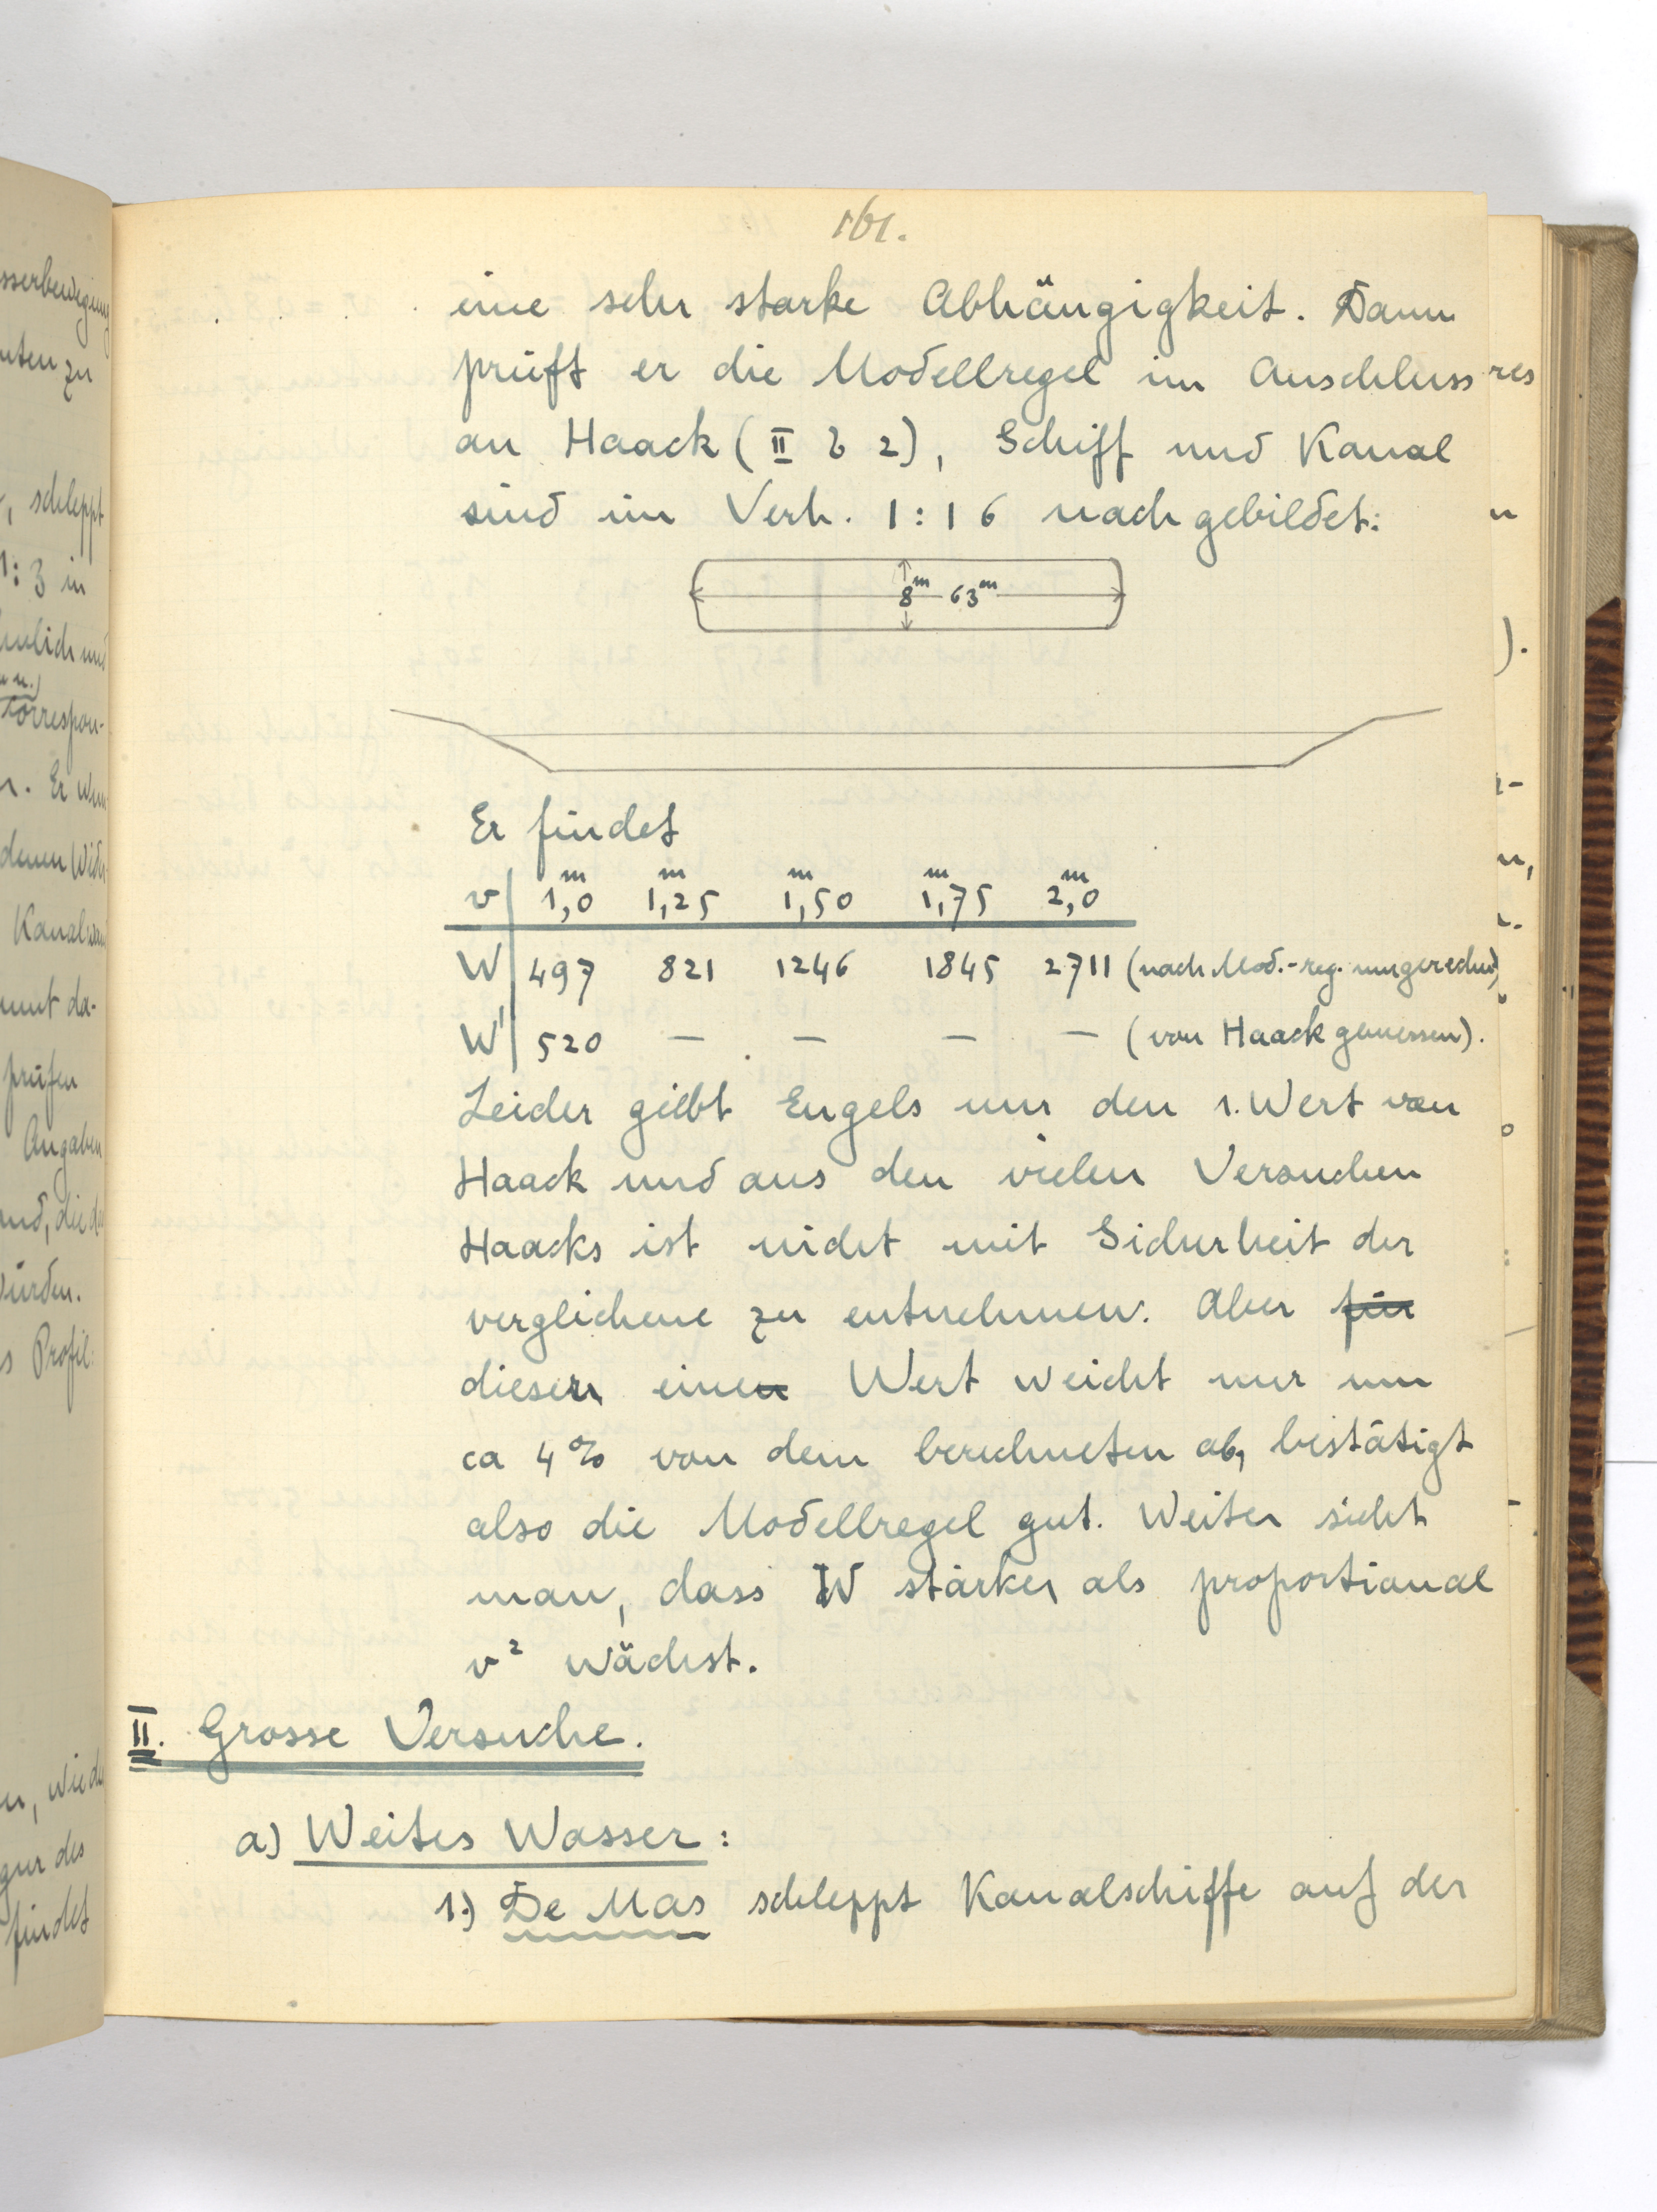 161.
eine sehr starke Abhängigkeit. Dann
prüft er die Modellregel im Anschluss
an Haack (II b 2), Schiff und Kanal
sind im Verh. 1:16 nachgebildet:
8m 63m
Er findet
v 1,0m 1,25m 1,50m 1,75m 2,0m
W 497 821 1246 1845 2711 (nach Mod.-reg. umgerechn.)
W' 520 — — — — (von Haack gemessen).
Leider giebt Engels nur den 1. Wert von
Haack und aus den vielen Versuchen
Haacks ist nicht mit Sicherheit der
verglichene zu entnehmen. Aber für
dieser einen Wert weicht nur um
ca 4% von dem berechneten ab, bestätigt
also die Modellregel gut. Weiter sieht
man, dass W stärker als proportional
v² wächst.
II. Grosse Versuche.
a) Weites Wasser:
1.) De Mas schleppt Kanalschiffe auf der
sserbewegung
uten zu
, schleppt
1:3 in
correspon-
n. Er
Kanal
mmt da-
prüfen
Angaben
und, die
würden.
s Profil:
gur des
findet